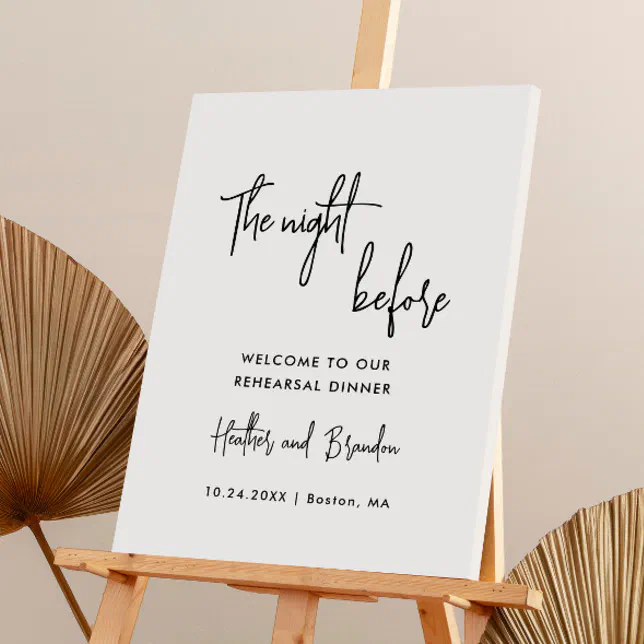 The night
before
WELCOME TO OUR
REHEARSAL DINNER
Heather and Brandon
10.24.20XX | Boston, MA